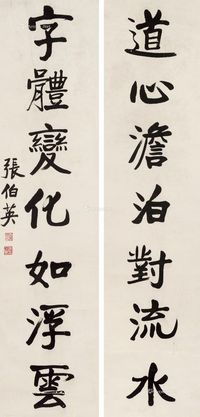 道心澹泊對流水
字體變化如浮雲
張伯英